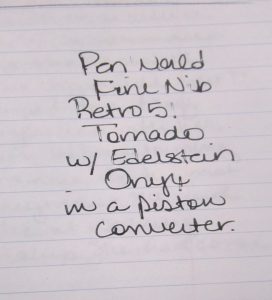 Pen World
Fine Nib
Retro 5!
Tornado
w/ Edelstein
Onyx
in a piston
converter.